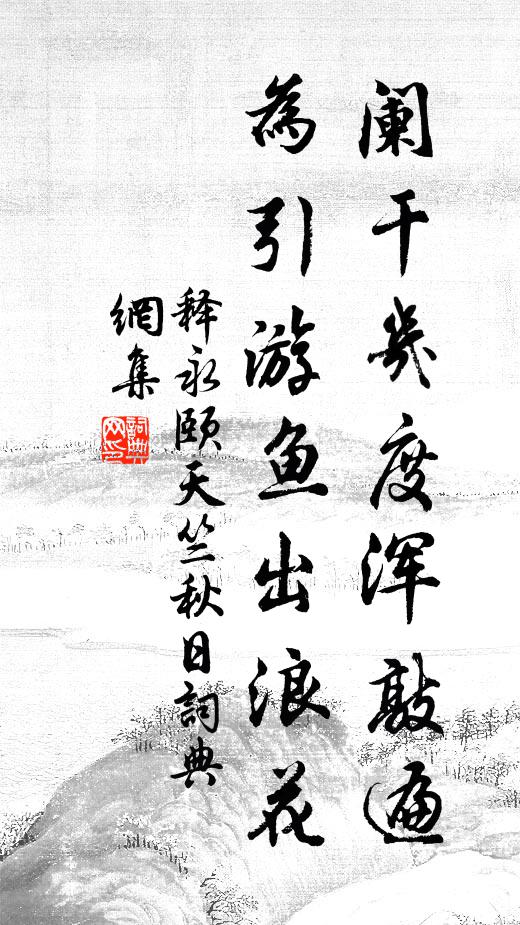 阑干几度浑敲遍
為引游鱼出浪花
释永颐天竺秋日詞典
網集
詞典
网印